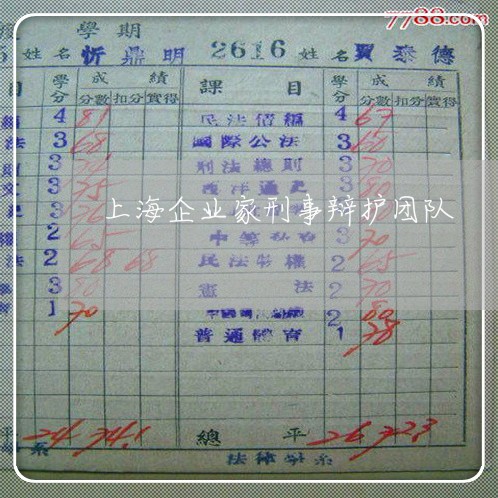 7788.com
學期
5 姓名 忻鼎明 2616 姓名 賈泰德
目 學分 成績 課目 學分 成績
分數 扣分 實得 分數 扣分 實得
4 81 民法債編 4 67
法 3 68 國際公法 3 60
3 刑法總則 3 70
3 75 西洋通史 3
3 76 3
上海企业家刑事辩护团队
2 65 3 70
法 2 68 68 民法物權 2 65
3 憲法 2 70
1 70 2 80
普通體育 1 78
平 24 74.1 總平 26 72.3
系 法律學系